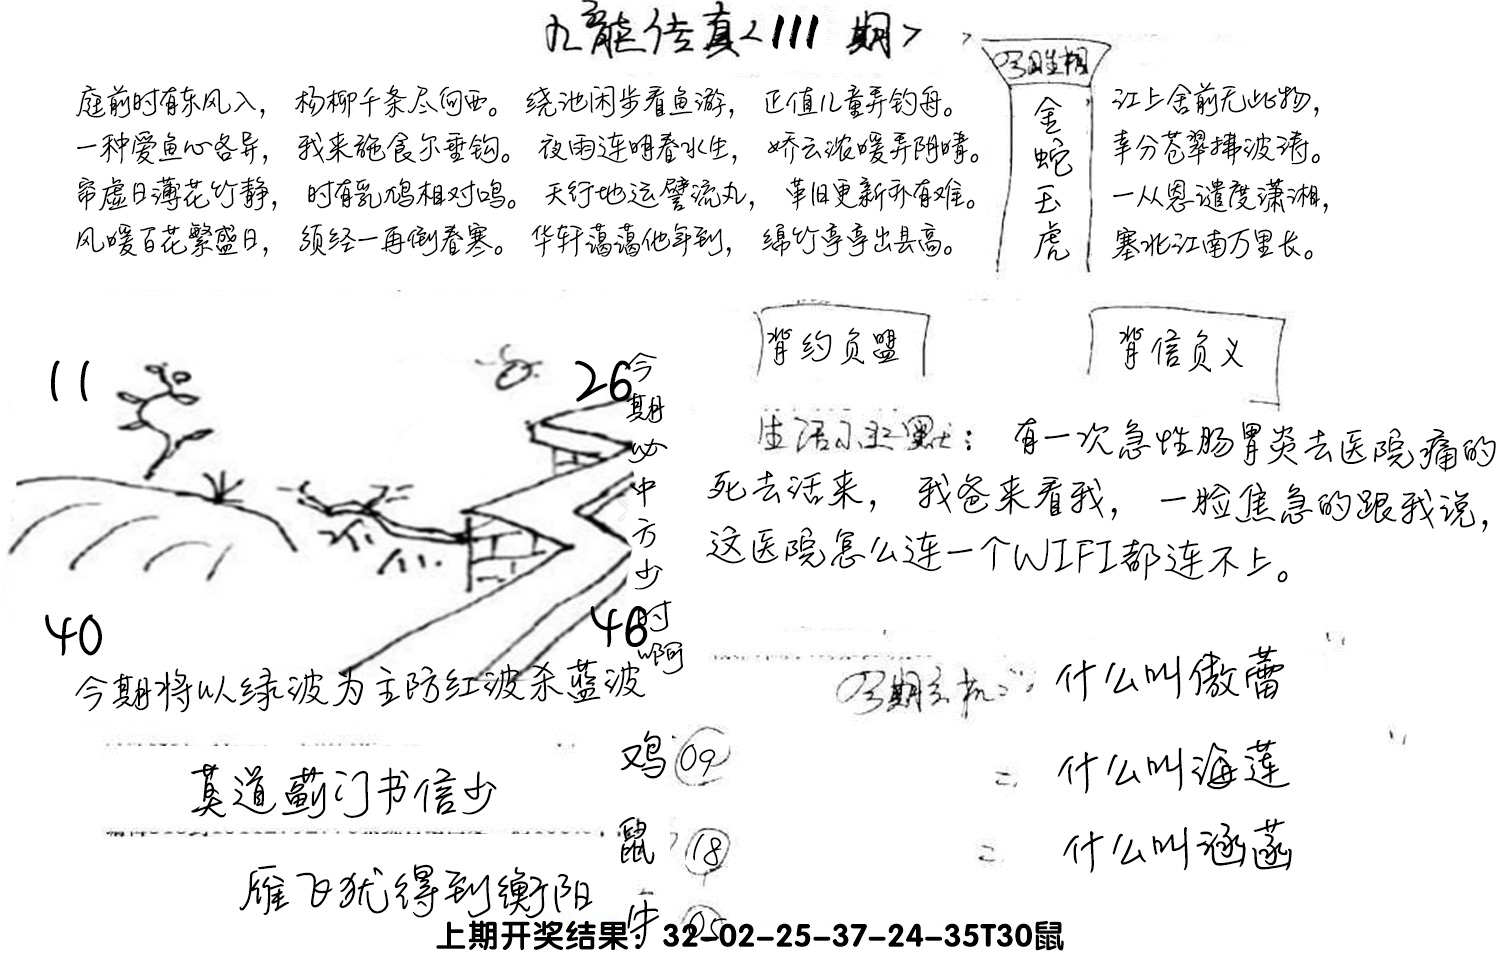 九龙传真<111期>
今期生相
金蛇玉虎
庭前时有东风入，杨柳千条尽向西。绕池闲步看鱼游，正值儿童弄钓舟。
一种爱鱼心各异，我来施食尔垂钩。夜雨连明春水生，娇云浓暖弄阴晴。
帘虚日薄花竹静，时有乳鸠相对鸣。天行地运譬流丸，革旧更新亦有难。
风暖百花繁盛日，须经一再倒春寒。华轩蔼蔼他年到，绵竹亭亭出县高。
江上舍前无此物，
幸分苍翠拂波涛。
一从恩谴度潇湘，
塞北江南万里长。
背约负盟
背信负义
11
26
40
46
今期必中方少时啊
生活小幽默：有一次急性肠胃炎去医院痛的
死去活来，我爸来看我，一脸焦急的跟我说，
这医院怎么连一个WIFI都连不上。
今期将以绿波为主防红波杀蓝波
今期玄机：什么叫傲蕾
=什么叫海莲
=什么叫涵菡
莫道蓟门书信少
雁飞犹得到衡阳
鸡09
鼠18
牛05
上期开奖结果：32-02-25-37-24-35T30鼠